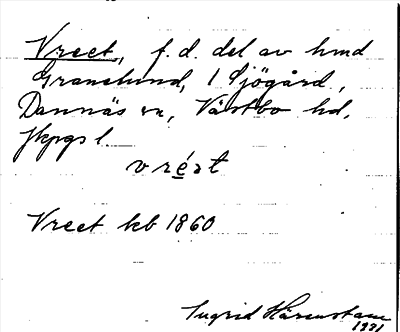 Vreet, f.d. del av hmd
Granelund, 1 Sjögård,
Dannäs sn, Västbo hd,
Jkpgs l
vrért
Vreet kb 1860
Ingrid Härenstam
1971